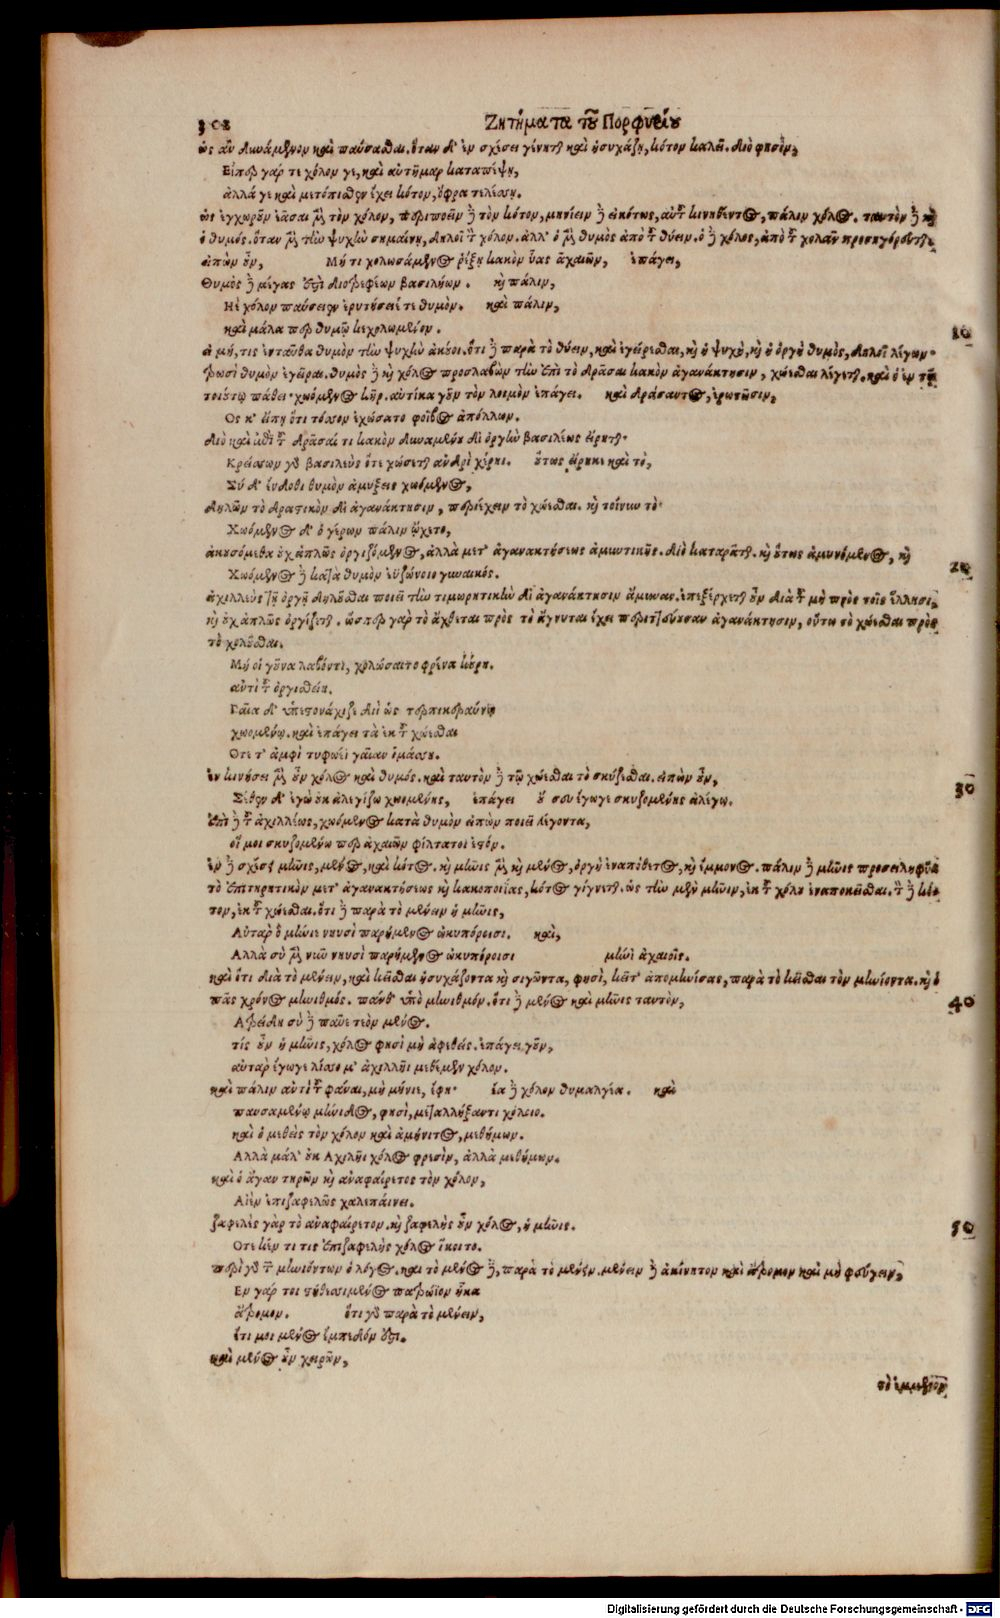 302 Ζητήματα τοῦ Πορφυρίου
ὡς ἂν δυνάμενον καὶ παύσασθαι. ὅταν δ' ἐν σχέσει γένηται καὶ ἡσυχάζῃ, κότον καλεῖ. διὸ φησίν,
Εἴπερ γάρ τε χόλον γε, καὶ αὐτῆμαρ καταπέψῃ,
ἀλλά γε καὶ μετόπισθεν ἔχει κότον, ὄφρα τελέσσῃ.
ὡς ἐγχωρεῖν ἐᾶσαι μὲν τὸν χόλον, περιποιεῖν δὲ τὸν κότον, μηνίειν δὲ εἰκότως, αὖ τοῦ κινηθέντος, πάλιν χόλος. ταυτὸν δὲ καὶ
ὁ θυμός. ὅταν μὴ τὴν ψυχὴν σημαίνῃ, δηλοῖ τὸν χόλον. ἀλλ' ὁ μὲν θυμὸς ἀπὸ τοῦ θύειν. ὁ δὲ χόλος, ἀπὸ τοῦ χολᾶν προσηγόρευται.
εἰπὼν οὖν, Μή τι χολωσάμενος ῥέξῃ κακὸν υἷας ἀχαιῶν, ἐπάγει,
Θυμὸς δὲ μέγας ἐστὶ διοτρεφέων βασιλήων. καὶ πάλιν,
Ηὲ χόλον παύσειεν ἐρητύσειέ τε θυμόν. καὶ πάλιν,
καὶ μάλα περ θυμῷ κεχολωμένον. 10
εἰ μή, τις ἐνταῦθα θυμὸν τὴν ψυχὴν ἀκούοι. ὅτι δὲ παρὰ τὸ θύειν, καὶ ἐγείρεσθαι, καὶ ἡ ψυχὴ, καὶ ἡ ὀργὴ θυμός, δηλοῖ λέγων·
Τρωσὶ θυμὸν ἐγεῖραι. θυμὸς δὲ καὶ χόλος προσλαβὼν τὴν ἐπὶ τὸ δρᾶσαι κακὸν ἀγανάκτησιν, χώεσθαι λέγεται. καὶ ὁ ἐν τῷ
τοιούτῳ πάθει· χωόμενος κῆρ. αὐτίκα γοῦν τὸν λοιμὸν ἐπάγει. καὶ δράσαντος, ἐρωτῶσιν,
Ος κ' εἴπῃ ὅτι τόσσον ἐχώσατο φοῖβος ἀπόλλων.
διὸ καὶ ἐπὶ τοῦ δρᾶσαί τι κακὸν δυναμένου δι' ὀργὴν βασιλέως εἴρηται·
Κρείσσων γὰρ βασιλεὺς ὅτε χώσεται ἀνδρὶ χέρηι. οὕτως εἴρηκε καὶ τὸ,
Σὺ δ' ἔνδοθι θυμὸν ἀμύξεις χωόμενος,
δηλῶν τὸ δραστικὸν δι' ἀγανάκτησιν, περιέχειν τὸ χώεσθαι. καὶ τοίνυν τὸ·
Χωόμενος δ' ὁ γέρων πάλιν ᾤχετο,
ἀκουσόμεθα οὐχ ἁπλῶς ὀργιζόμενος, ἀλλὰ μετ' ἀγανακτήσεως ἀμυντικῆς. διὸ καταρᾶται. καὶ οὕτως ἀμυνόμενος, καὶ 20
Χωόμενος δὲ κατὰ θυμὸν ἐϋζώνοιο γυναικός.
ἀχιλλεὺς τῇ ὀργῇ δηλοῦσθαι ποιεῖ τὴν τιμωρητικὴν δι' ἀγανάκτησιν ἄμυναν. ἐπεξέρχεται οὖν διὰ τοῦ μὴ πρὸς τοῖς ἕλλησι,
καὶ οὐχ ἁπλῶς ὀργίζεται. ὥσπερ γὰρ τὸ ἄχθεται πρὸς τὸ ἄγνυται ἔχει περιττεύουσαν ἀγανάκτησιν, οὕτω τὸ χώεσθαι πρὸς
τὸ χολοῦσθαι.
Μή οἱ γοῦνα λαβόντι, χολώσαιτο φρένα κούρη.
αὐτὶ τοῦ ὀργισθείη.
Γαῖα δ' ὑπεστονάχιζε διὶ ὡς τερπικεραύνῳ
χωομένῳ. καὶ ἐπάγει τὰ ἐκ τοῦ χώεσθαι
Οτε τ' ἀμφὶ τυφωέϊ γαῖαν ἱμάσσῃ.
ἐν κινήσει μὲν οὖν χόλος καὶ θυμός. καὶ ταυτὸν δὲ τῷ χώεσθαι τὸ σκύζεσθαι. εἰπὼν οὖν, 30
Σέθεν δ' ἐγὼ οὐκ ἀλεγίζω χωομένης, ἐπάγει οὔ σευ ἔγωγε σκυζομένης ἀλέγω.
ἐπὶ δὲ τοῦ ἀχιλλέως, χωόμενος κατὰ θυμὸν εἰπὼν ποιεῖ λέγοντα,
οἵ μοι σκυζομένῳ περ ἀχαιῶν φίλτατοι ἐστόν.
ἐν δὲ σχέσει μῆνις, μένος, καὶ κότος. καὶ μῆνις μὲν, καὶ μένος, ὀργὴ ἐναπόθετος, καὶ ἔμμονος. πάλιν δὲ μῆνις προσειληφυῖα
τὸ ἐπιτηρητικὸν μετ' ἀγανακτήσεως καὶ κακοποιΐας, κότος γίγνεται. ὡς τὴν μὲν μῆνιν, ἐκ τοῦ χόλου ἐναποκεῖσθαι. τὸν δὲ κό-
τον, ἐκ τοῦ χώεσθαι. ὅτι δὲ παρὰ τὸ μένειν ἡ μῆνις,
Αὐτὰρ ὁ μήνιε νηυσὶ παρήμενος ὠκυπόροισι. καὶ,
Αλλὰ σὺ μὲν νῦν νηυσὶ παρήμενος ὠκυπόροισι μήνι' ἀχαιοῖς.
καὶ ὅτι διὰ τὸ μένειν, καὶ κεῖσθαι ἡσυχάζοντα καὶ σιγῶντα, φησὶ, κεῖτ' ἀπομηνίσας, παρὰ τὸ κεῖσθαι τὸν μηνίοντα. καὶ ὁ
πᾶς χρόνος μηνιθμός. παύθ' ὑπὸ μηνιθμόν. ὅτι δὲ μένος καὶ μῆνις ταυτὸν, 40
Ατρείδη σὺ δὲ παῦε τεὸν μένος.
τίς οὖν ἡ μῆνις, χόλος φησὶ μὴ ἀφεθείς. ἐπάγει γοῦν,
αὐτὰρ ἔγωγε λίσσομ' ἀχιλλῆϊ μεθέμεν χόλον.
καὶ πάλιν αὐτὶ τοῦ φάναι, μὴ μήνιε, ἔφη· ἔα δὲ χόλον θυμαλγέα. καὶ
παυσαμένῳ μήνιδος, φησὶ, μεταλλήξαντι χόλοιο.
καὶ ὁ μεθεὶς τὸν χόλον καὶ ἀμήνιτος, μεθήμων.
Αλλὰ μάλ' οὐκ Αχιλῆϊ χόλος φρεσὶν, ἀλλὰ μεθήμων.
καὶ ὁ ἄγαν τηρῶν καὶ ἀναφαίρετος τὸν χόλον,
Αἰὲν ἐπιζαφελῶς χαλεπαίνει.
ζαφελὲς γὰρ τὸ ἀναφαίρετον. καὶ ζαφελὴς οὖν χόλος, ἡ μῆνις. 50
Οτε κέν τι τις ἐπιζαφελὴς χόλος ἵκοιτο.
περὶ γὰρ τῶν μηνιόντων ὁ λόγος. καὶ τὸ μένος δὲ, παρὰ τὸ μένειν. μένειν δὲ ἀκίνητον καὶ ἄτρομον καὶ μὴ φεύγειν,
Εν γάρ τοι στήθεσσι μένος πατρώϊον ἧκα
ἄτρομον. ὅτι γὰρ παρὰ τὸ μένειν,
ἔτι μοι μένος ἔμπεδόν ἐστι.
καὶ μένος οὖν χειρῶν,
τὸ ἐμμενετὸν
Digitalisierung gefördert durch die Deutsche Forschungsgemeinschaft - DFG